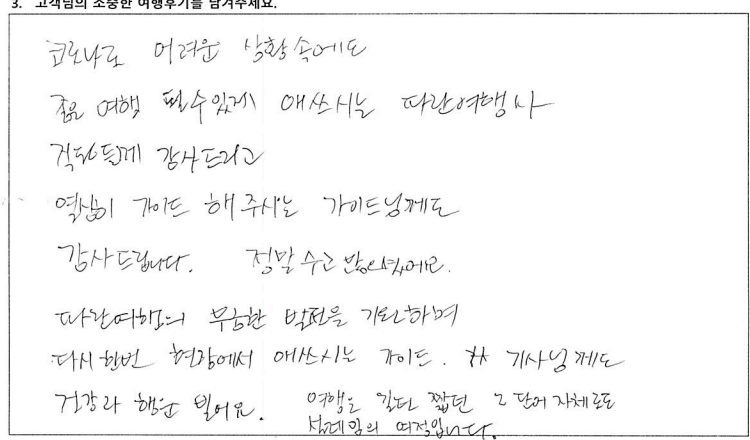 3. 고객님의 소중한 여행후기를 남겨주세요.
코로나로 어려운 상황속에도
좋은 여행 될수있게 애쓰시는 따란여행사
직원들께 감사드리고
열심히 가이드 해주시는 가이드님께도
감사드립니다. 정말 수고 많으셨어요.
따란여행의 무궁한 발전을 기원하며
다시한번 현장에서 애쓰시는 가이드. 기사님께도
건강과 행운 빌어요. 여행은 길던 짧던 그 단어자체로도
설레임의 여정입니다.